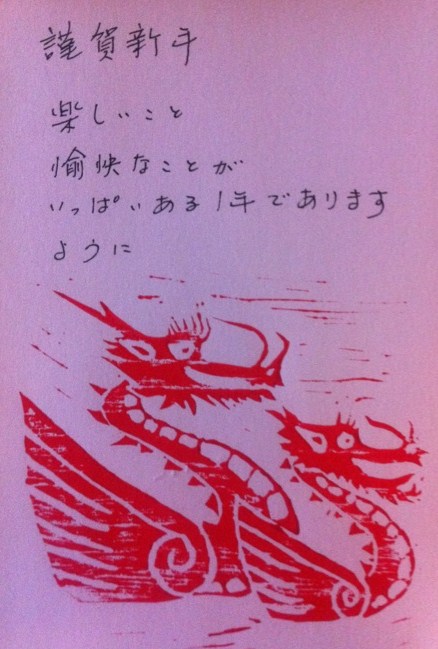 謹賀新年
楽しいこと
愉快なことが
いっぱいある1年であります
ように